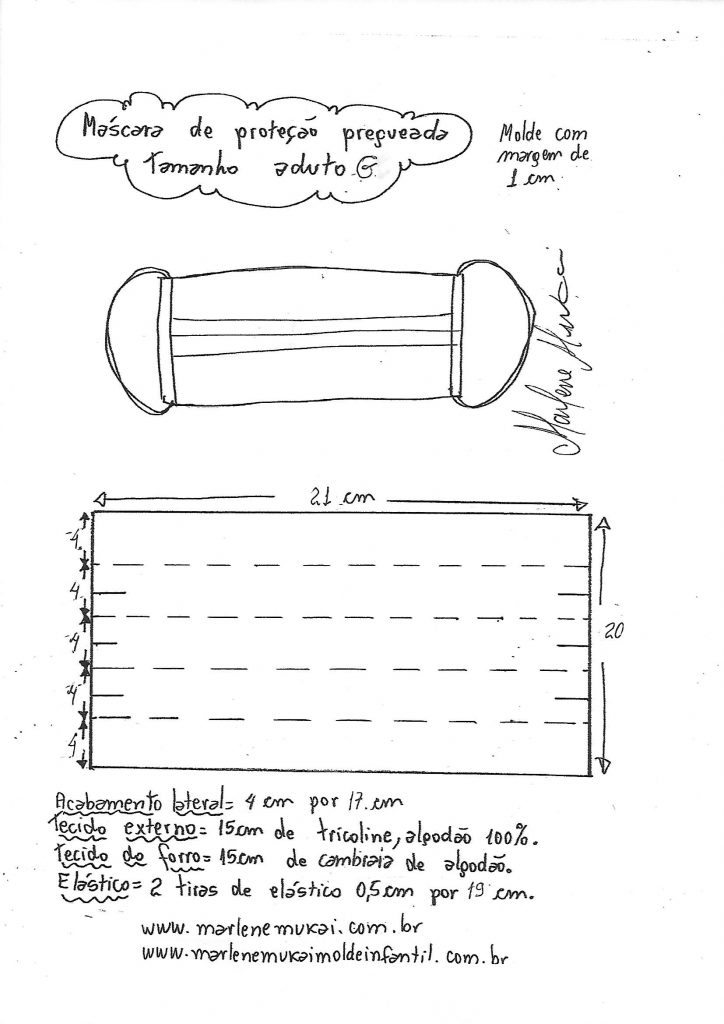 Máscara de proteção pregueada
Tamanho aduto G
Molde com
margem de
1 cm.
Marlene Mukai
21 cm
4
4
4
4
4
20
Acabamento lateral= 4 cm por 17 cm
Tecido externo= 15cm de tricoline, algodão 100%.
Tecido do forro= 15cm de cambraia de algodão.
Elástico= 2 tiras de elástico 0,5cm por 19 cm.
www.marlenemukai.com.br
www.marlenemukaimoldeinfantil.com.br